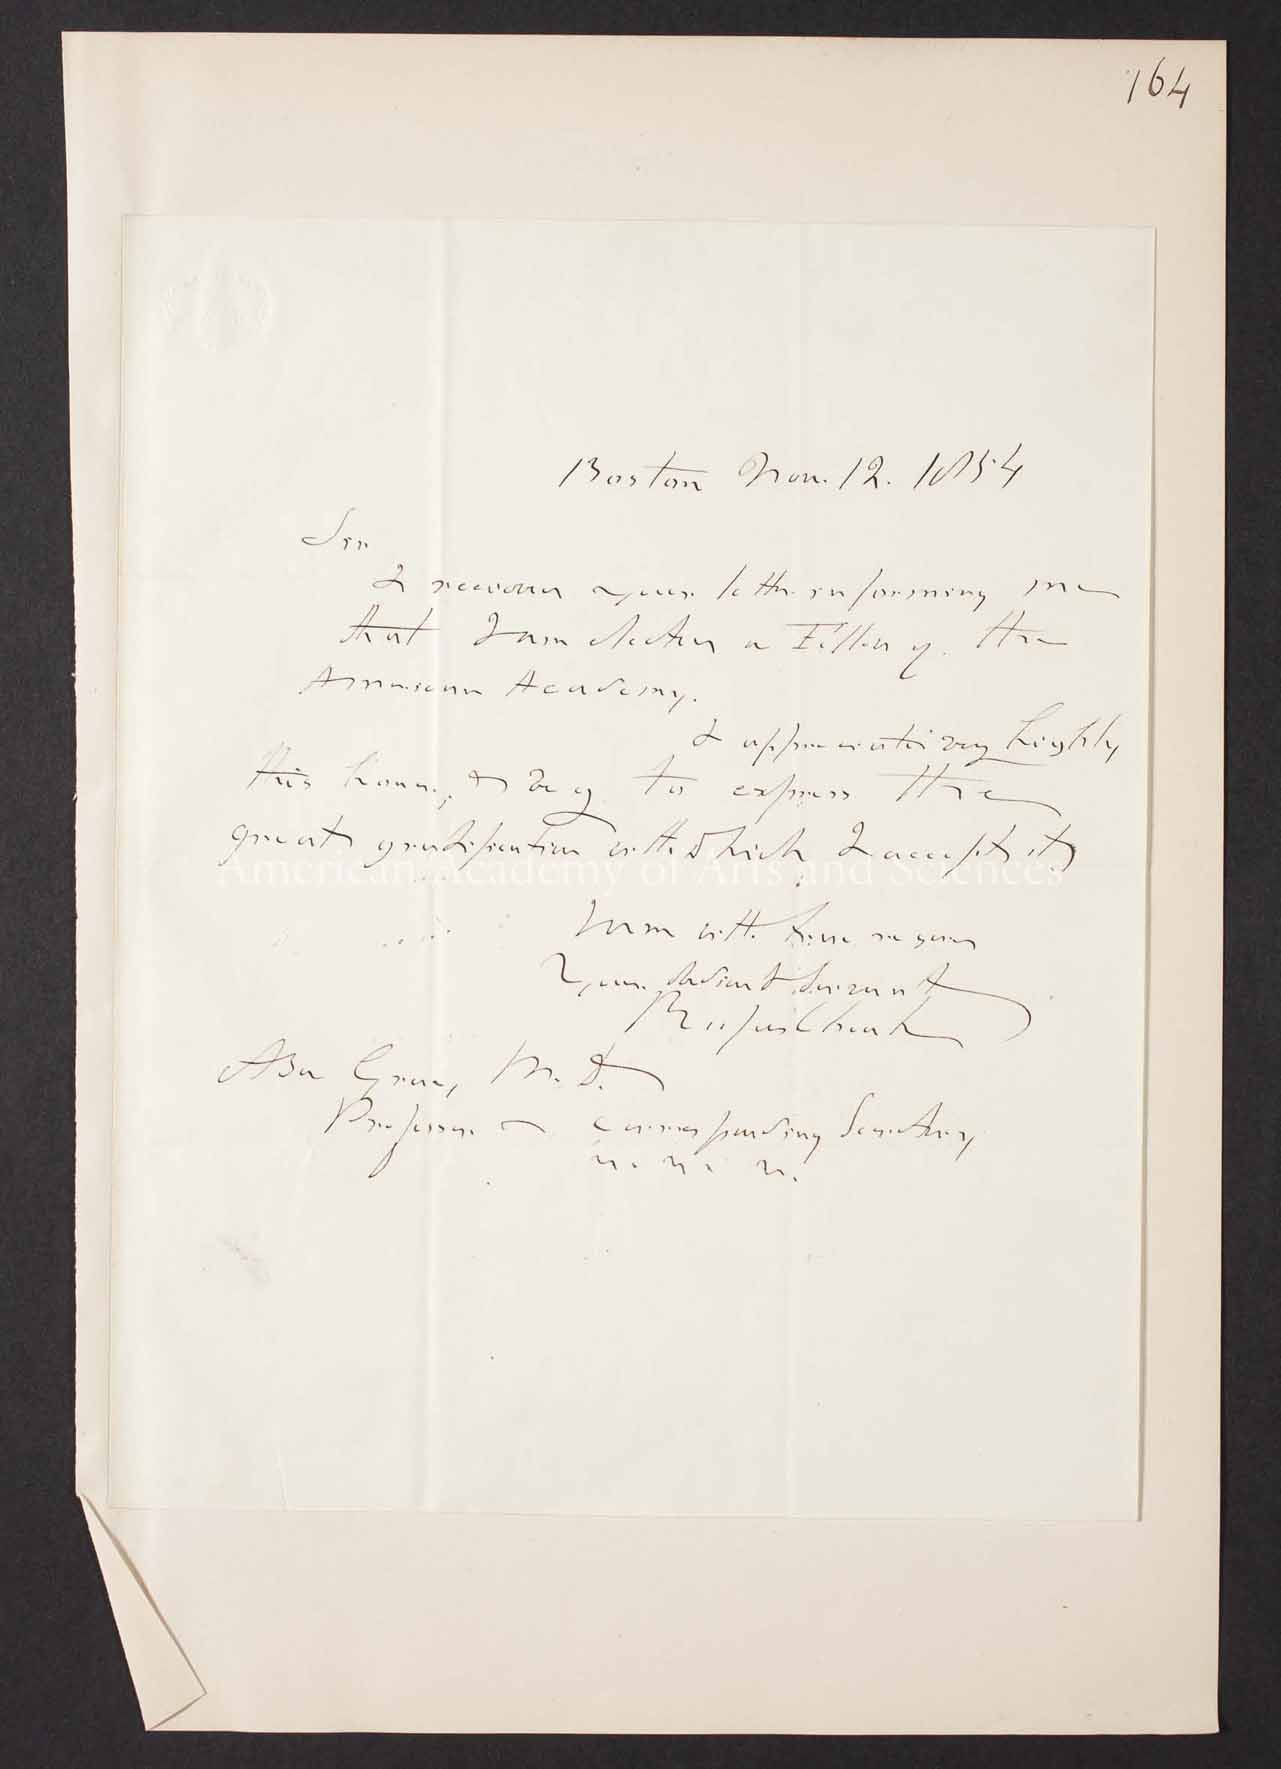 164
Boston Nov. 12. 1854
Sir
I received your letter informing me
that I am elected a Fellow of the
American Academy.
I appreciate very highly
this honor, & beg to express the
great gratification with which I accept it
American Academy of Arts and Sciences
I am with true regard
Your obedient servant
Rufus Choate
Asa Gray, M. D.
Professor & Corresponding Secretary